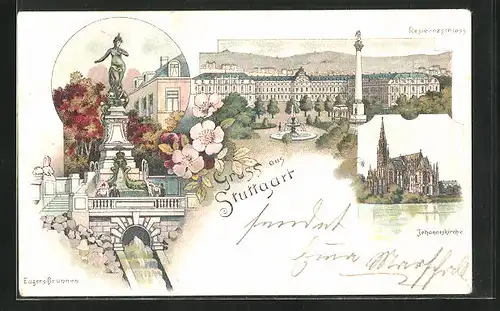 Residenzschloss
Gruss aus
Stuttgart
Johanneskirche
sendet
Eugens-Brunnen